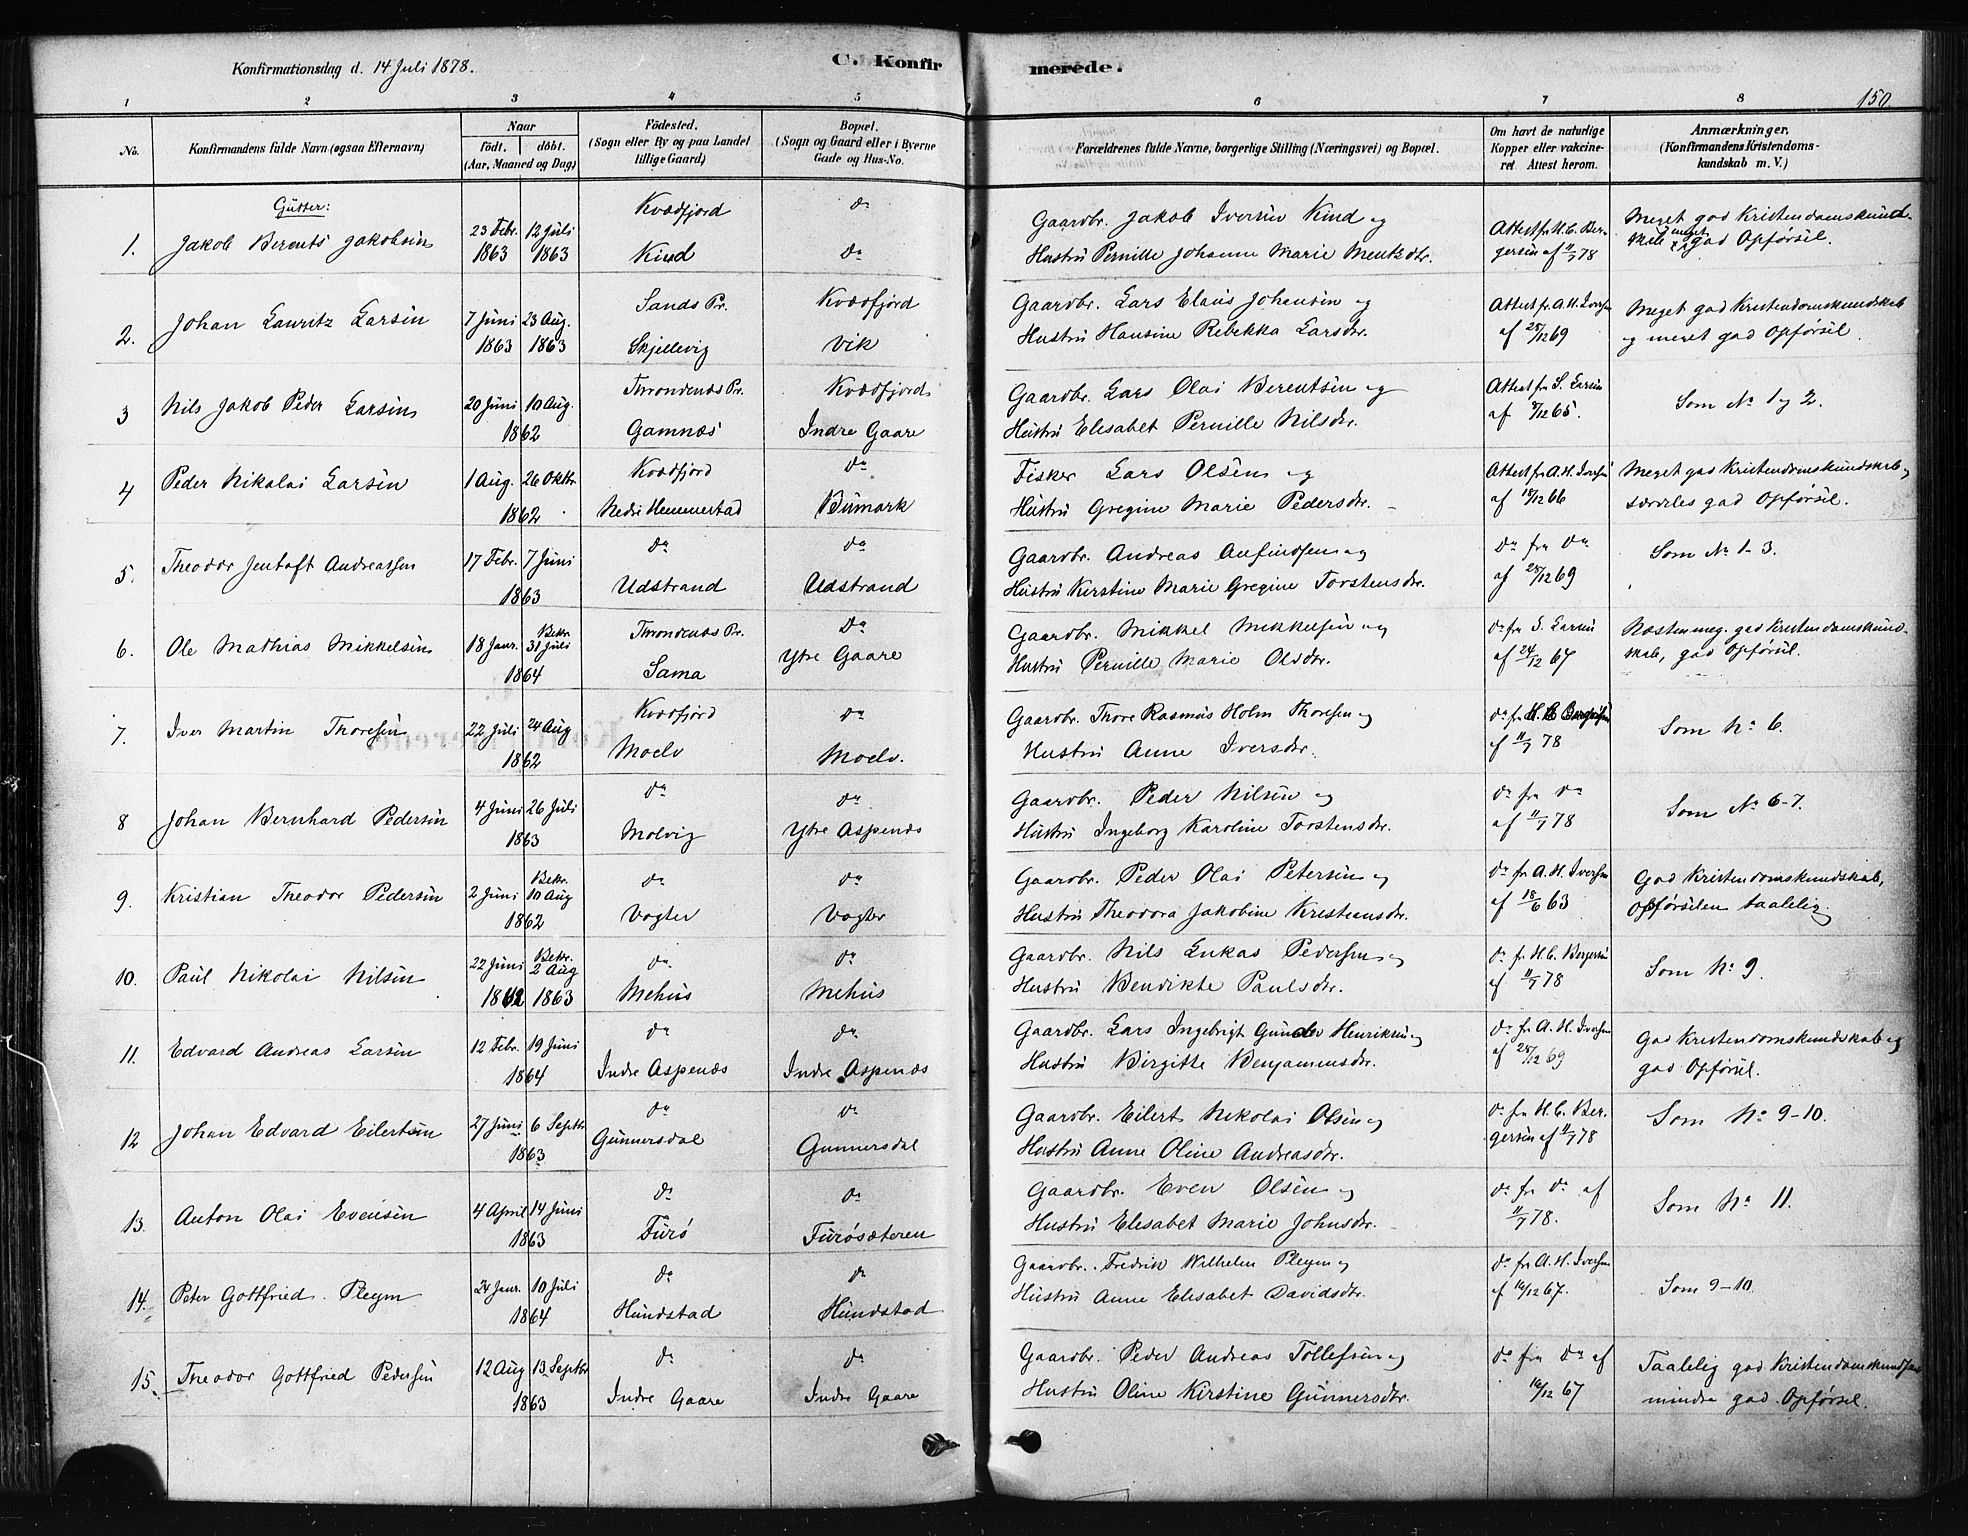 Konfirmationsdag d. 14 Juli 1878.
C. Konfirmerede.
150
1 2 3 4 5 6 7 8
No.
Konfirmandens fulde Navn (ogsaa Efternavn)
Naar
Født. døbt.
(Aar, Maaned og Dag)
Fødested.
(Sogn eller By og paa Landet
tillige Gaard)
Bopæl.
(Sogn og Gaard eller i Byerne
Gade og Hus-No.
Forældrenes fulde Navne, borgerlige Stilling (Næringsvei) og Bopæl.
Om havt de naturlige
Kopper eller vakcine-
ret Attest herom.
Anmærkninger.
(Konfirmandens Kristendoms-
kundskab m. V.)
Gutter:
1. Jakob Berents Jakobsen
23 Febr. 1863 12 Juli 1863
Kvædfjord Kind
do do
Gaardbr. Jakob Iversen Kind og
Hustru Pernille Johanne Marie Mentzdtr.
Attest fr. H. C. Ber-
gersen af 11/7 78
Meget god Kristendomskund-
skab, meget god Opførsel.
2. Johan Lawritz Larsen
7 Juni 1863 23 Aug. 1863
Sands Pr. Skjellevig
Kvædfjord Vik
Gaardbr. Lars Elaus Johansen og
Hustru Hansine Rebekka Larsdtr.
Attest fr. A. H. Iversen
af 28/12 69
Meget god Kristendomskundskab
og meget god Opførsel.
3 Nils Jakob Peder Larsen
20 Juni 10 Aug. 1862
Throndenæs Pr. Gamnæs
Kvædfjord Indre Gaare
Gaardbr. Lars Olai Berentsen og
Hustru Elisabet Pernille Nilsdtr.
Attest fr. S. Larsen
af 8/12 65.
Som No 1 og 2.
4 Peder Nikolai Larsen
1 Aug. 26 Oktbr. 1862
Kvædfjord Nedre Hemmestad
do Bumark
Fisker Lars Olsen og
Hustru Gregine Marie Pedersdtr.
Attest fr. A. H. Iversen
af 18/12 66
Meget god Kristendomskundskab og
særdeles god Opførsel.
5. Theodor Jentoft Andreassen
17 Febr. 7 Juni 1863
do Udstrand
do Udstrand
Gaardbr. Andreas Anfindsen og
Hustru Kirstine Marie Gregine Torstensdtr.
do fra do
af 28/12 69
Som No 1-3.
6. Ole Mathias Mikkelsen
18 Janr. Bekr. 31 Juli 1864
Throndenæs Pr. Sama
do Ytre Gaare
Gaardbr. Mikkel Mikkelsen og
Hustru Pernille Marie Olsdtr.
do fra S. Larsen
af 24/12 67
Næsten meg. god Kristendomskund-
skab, god Opførsel.
7. Iver Martin Thoresen
22 Juli 24 Aug 1862
Kvædfjord Moelv
do Moelv.
Gaardbr. Thore Rasmus Holm Thoresen og
Hustru Anne Iversdtr.
do fr. H. C. Bergersen
af 11/7 78
Som No 6.
8 Johan Bernhard Pedersen
4 Juni 26 Juli 1863
do Molvig
do Ytre Aspenæs
Gaardbr. Peder Nilsen og
Hustru Ingeborg Karoline Torstensdtr.
do fra do
af 11/7 78
Som No 6-7.
9. Kristian Theodor Pedersen
2 Juni Bekr. 10 Aug 1862
do Vogter
do Vogter
Gaardbr. Peder Olai Petersen og
Hustru Theodora Jakobine Kristiansdtr.
do fr A. H. Iversen
af 18/6 63
God Kristendomskundskab,
Opførselen taalelig.
10. Paul Nikolai Nilsen
22 Juni 1862 Bekr. 2 Aug 1863
do Mehus
do Mehus
Gaardbr. Nils Lukas Pedersen og
Hustru Bendikte Paulsdtr.
do fr. H. C. Bergersen
af 11/7 78
Som No 9.
11. Edvard Andreas Larsen
12 Febr. 19 Juni 1864
do Indre Aspenæs
do Indre Aspenæs
Gaardbr. Lars Ingebrigt Gunder Henriksen og
Hustru Birgitte Benjaminsdtr.
do fr A. H. Iversen
af 28/12 69
God Kristendomskundskab og
god Opførsel.
12 Johan Edvard Eilertsen
27 Juni 6 Septbr 1863
do Gunnersdal
do Gunnersdal
Gaardbr. Eilert Nikolai Olsen og
Hustru Anne Oline Andreasdtr.
do fra H. C. Ber-
gersen af 11/7 78
Som No 9-10.
13. Anton Olai Evensen
4 April 14 Juni 1863
do Furø
do Furøsæteren
Gaardbr. Even Olsen og
Hustru Elisabet Marie Johnsdtr.
do fr do af
11/7 78.
Som No 11.
14. Peter Gottfried Pleym
24 Janr. 10 Juli 1864
do Hundstad
do Hundstad
Gaardbr. Fredrik Wilhelm Pleym og
Hustru Anne Elisabet Davidsdtr.
do fra A. H. Iversen
af 16/12 67.
Som 9-10.
15. Theodor Gottfried Pedersen
12 Aug 13 Septbr 1863
do Indre Gaare
do Indre Gaare
Gaardbr. Peder Andreas Tollefsen og
Hustru Oline Kirstine Gunnersdtr.
do fra do af
16/12 67
Taalelig god Kristendomskundskab
mindre god Opførsel.